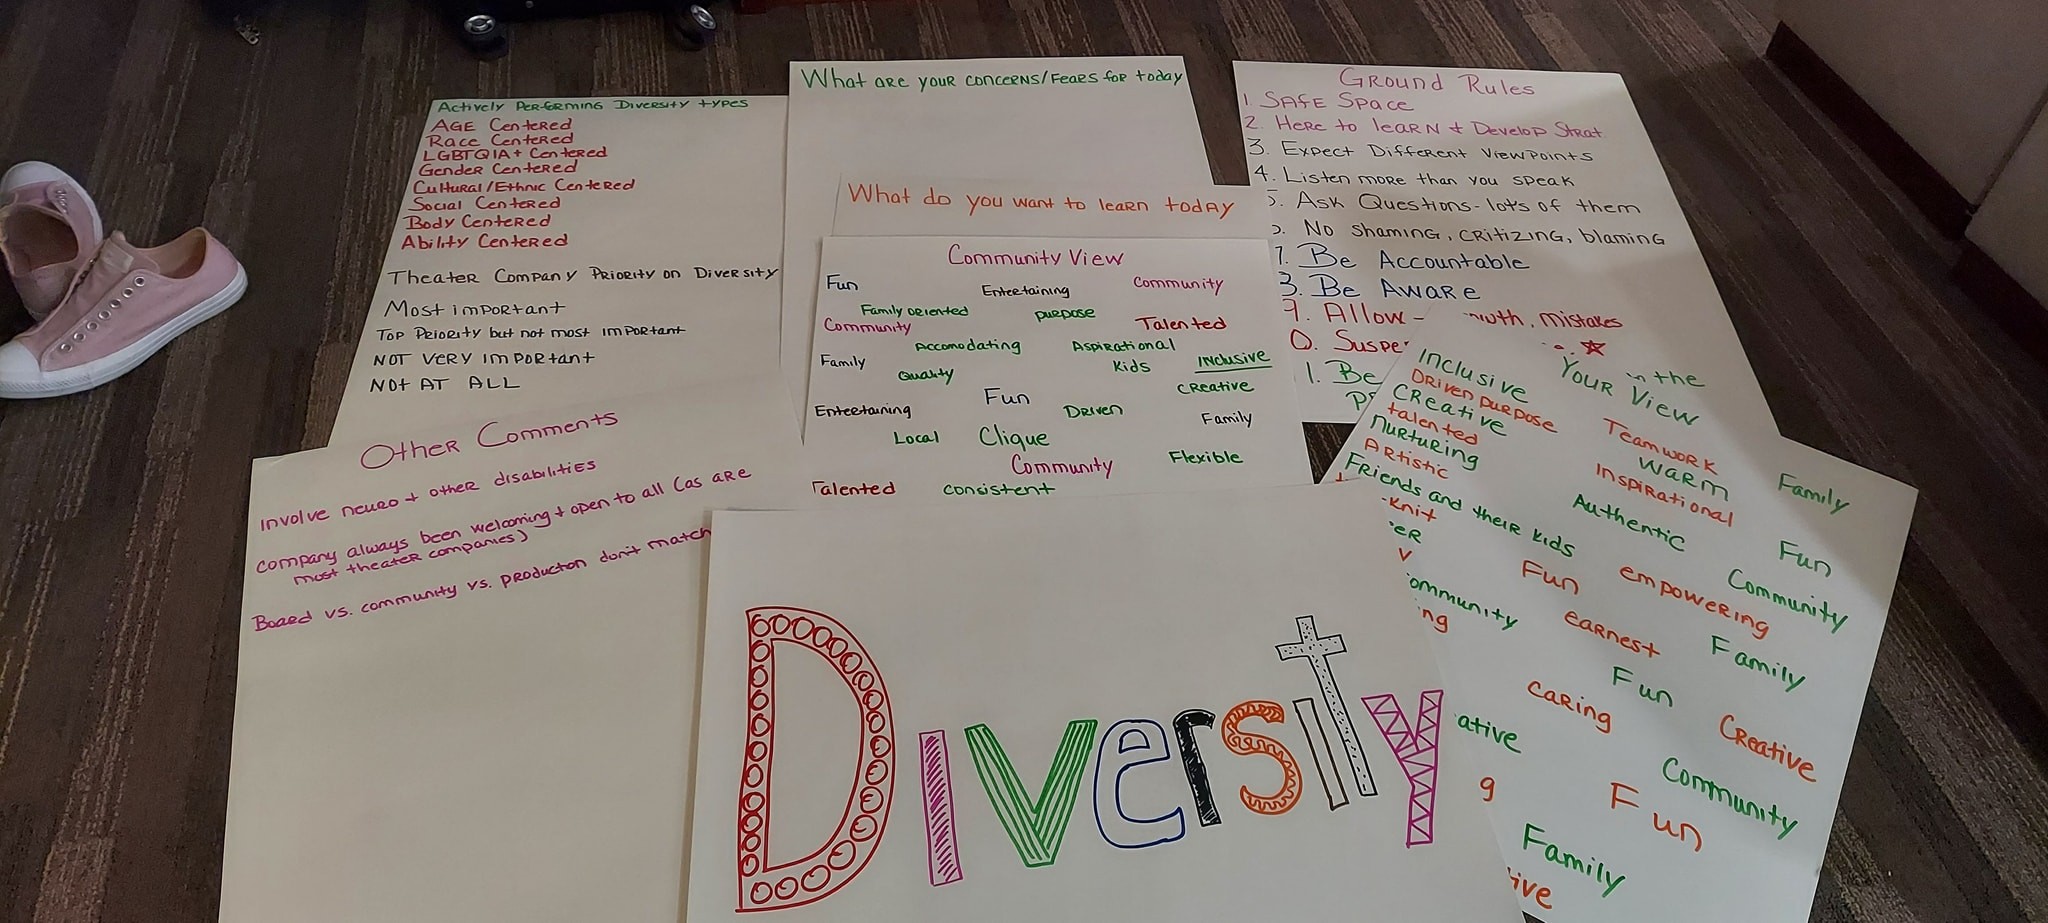 Actively Performing Diversity types
AGE Centered
Race Centered
LGBTQIA+ Centered
Gender Centered
Cultural/Ethnic Centered
Social Centered
Body Centered
Ability Centered
Theater Company Priority on Diversity
Most important
Top Priority but not most important
NOT VERY important
NOt AT ALL
What are your concerns/fears for today
What do you want to learn today
Ground Rules
1. Safe Space
2. Here to learn + Develop Strat
3. Expect Different Viewpoints
4. Listen more than you speak
5. Ask Questions - lots of them
No shaming, critizing, blaming
Be Accountable
Be Aware
Allow - mistakes
Be
Community View
Fun Entertaining Community
Family oriented purpose
Community Talented
Accomodating Aspirational
Family Kids Inclusive
Quality creative
Fun
Entertaining Driven Family
Local Clique
Community Flexible
Talented consistent
Other Comments
Involve neuro + other disabilities
company always been welcoming + open to all (as are
most theater companies)
Board vs. community vs. production don't match
in the
Your View
Inclusive
Driven purpose
Creative
talented
nurturing
Artistic
Friends and their kids
knit
Teamwork
Warm
Inspirational
Authentic
Family
Fun
Fun
empowering
Community
earnest
Family
Fun
caring
Creative
Community
Fun
Family
Diversity